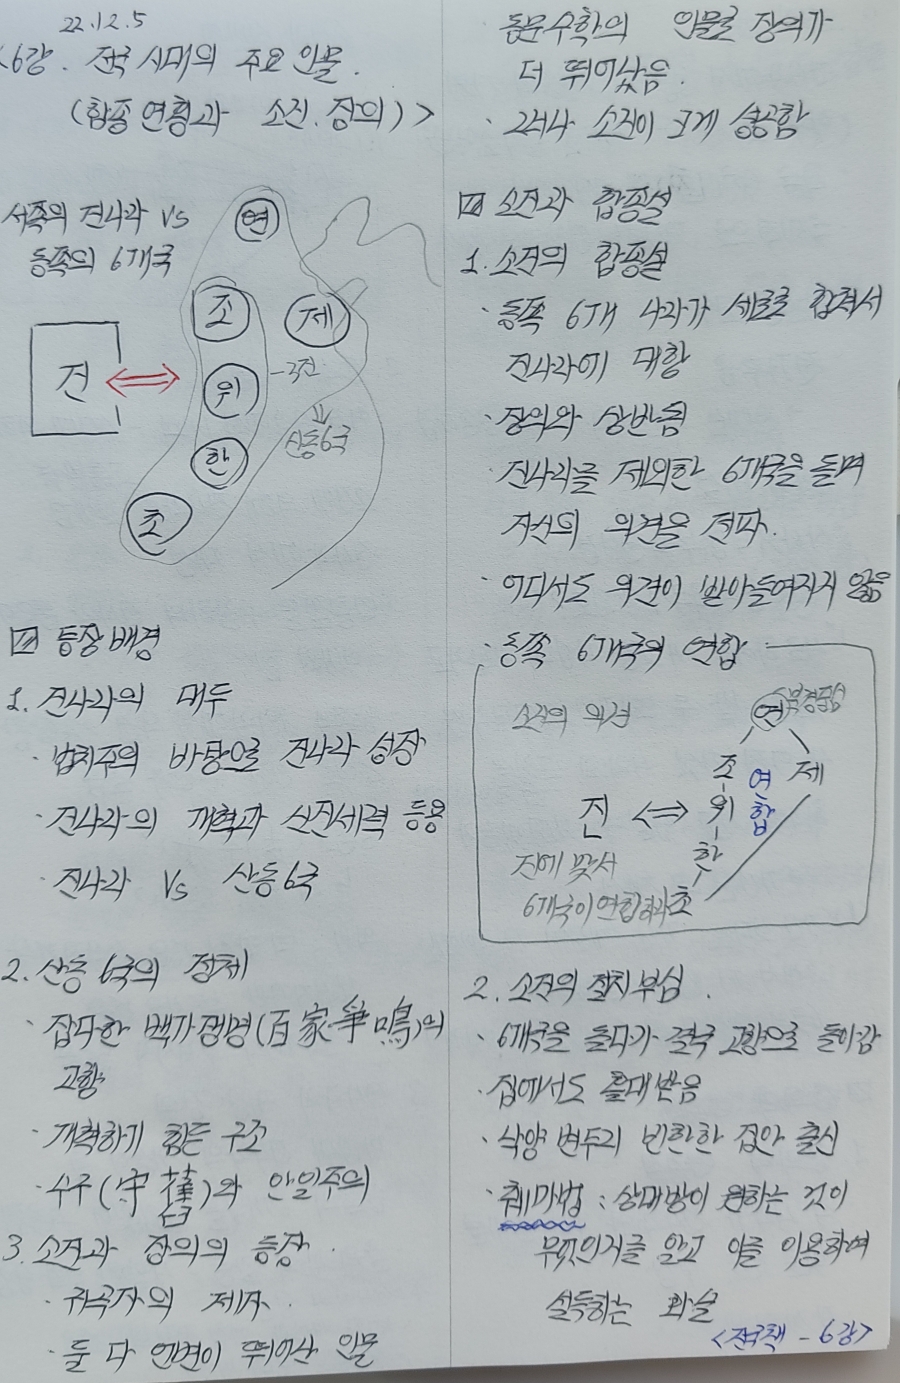 22.12.5
<6강. 전국시대의 주요 인물.
(합종연횡과 소진.장의)>
서쪽의 진나라 vs
동쪽의 6개국
연
조
제
진
위
-3진
한
산동6국
초
등장배경
1. 진나라의 대두
· 법치주의 바탕으로 진나라 성장
· 진나라의 개혁과 신진세력 등용
· 진나라 vs 산동6국
2. 산동 6국의 정체
· 잡다한 백가쟁명(百家爭鳴)의
고향
· 개혁하기 힘든 구조
· 수구(守舊)와 안일주의
3. 소진과 장의의 등장.
· 귀곡자의 제자.
· 둘 다 언변이 뛰어난 인물
동문수학의 인물로 장의가
더 뛰어났음.
· 그러나 소진이 크게 성공함
소진과 합종설
1. 소진의 합종설
· 동쪽 6개 나라가 세로로 합쳐서
진나라에 대항
· 장의와 상반됨
· 진나라를 제외한 6개국을 돌며
자신의 의견을 전파.
· 어디서도 의견이 받아들여지지 않음
· 동쪽 6개국의 연합
소진의 의견
연
조
제
연합
진 ⇔ 위
한
진에 맞서
6개국이 연합하라
초
2. 소진의 절치부심.
· 6개국을 돌다가 결국 고향으로 돌아감
· 집에서도 홀대받음
· 낙양 변두리 빈한한 집안 출신
· 췌마법 : 상대방이 원하는 것이
무엇인지를 알고 이를 이용하여
설득하는 화술
<전국책 - 6강>